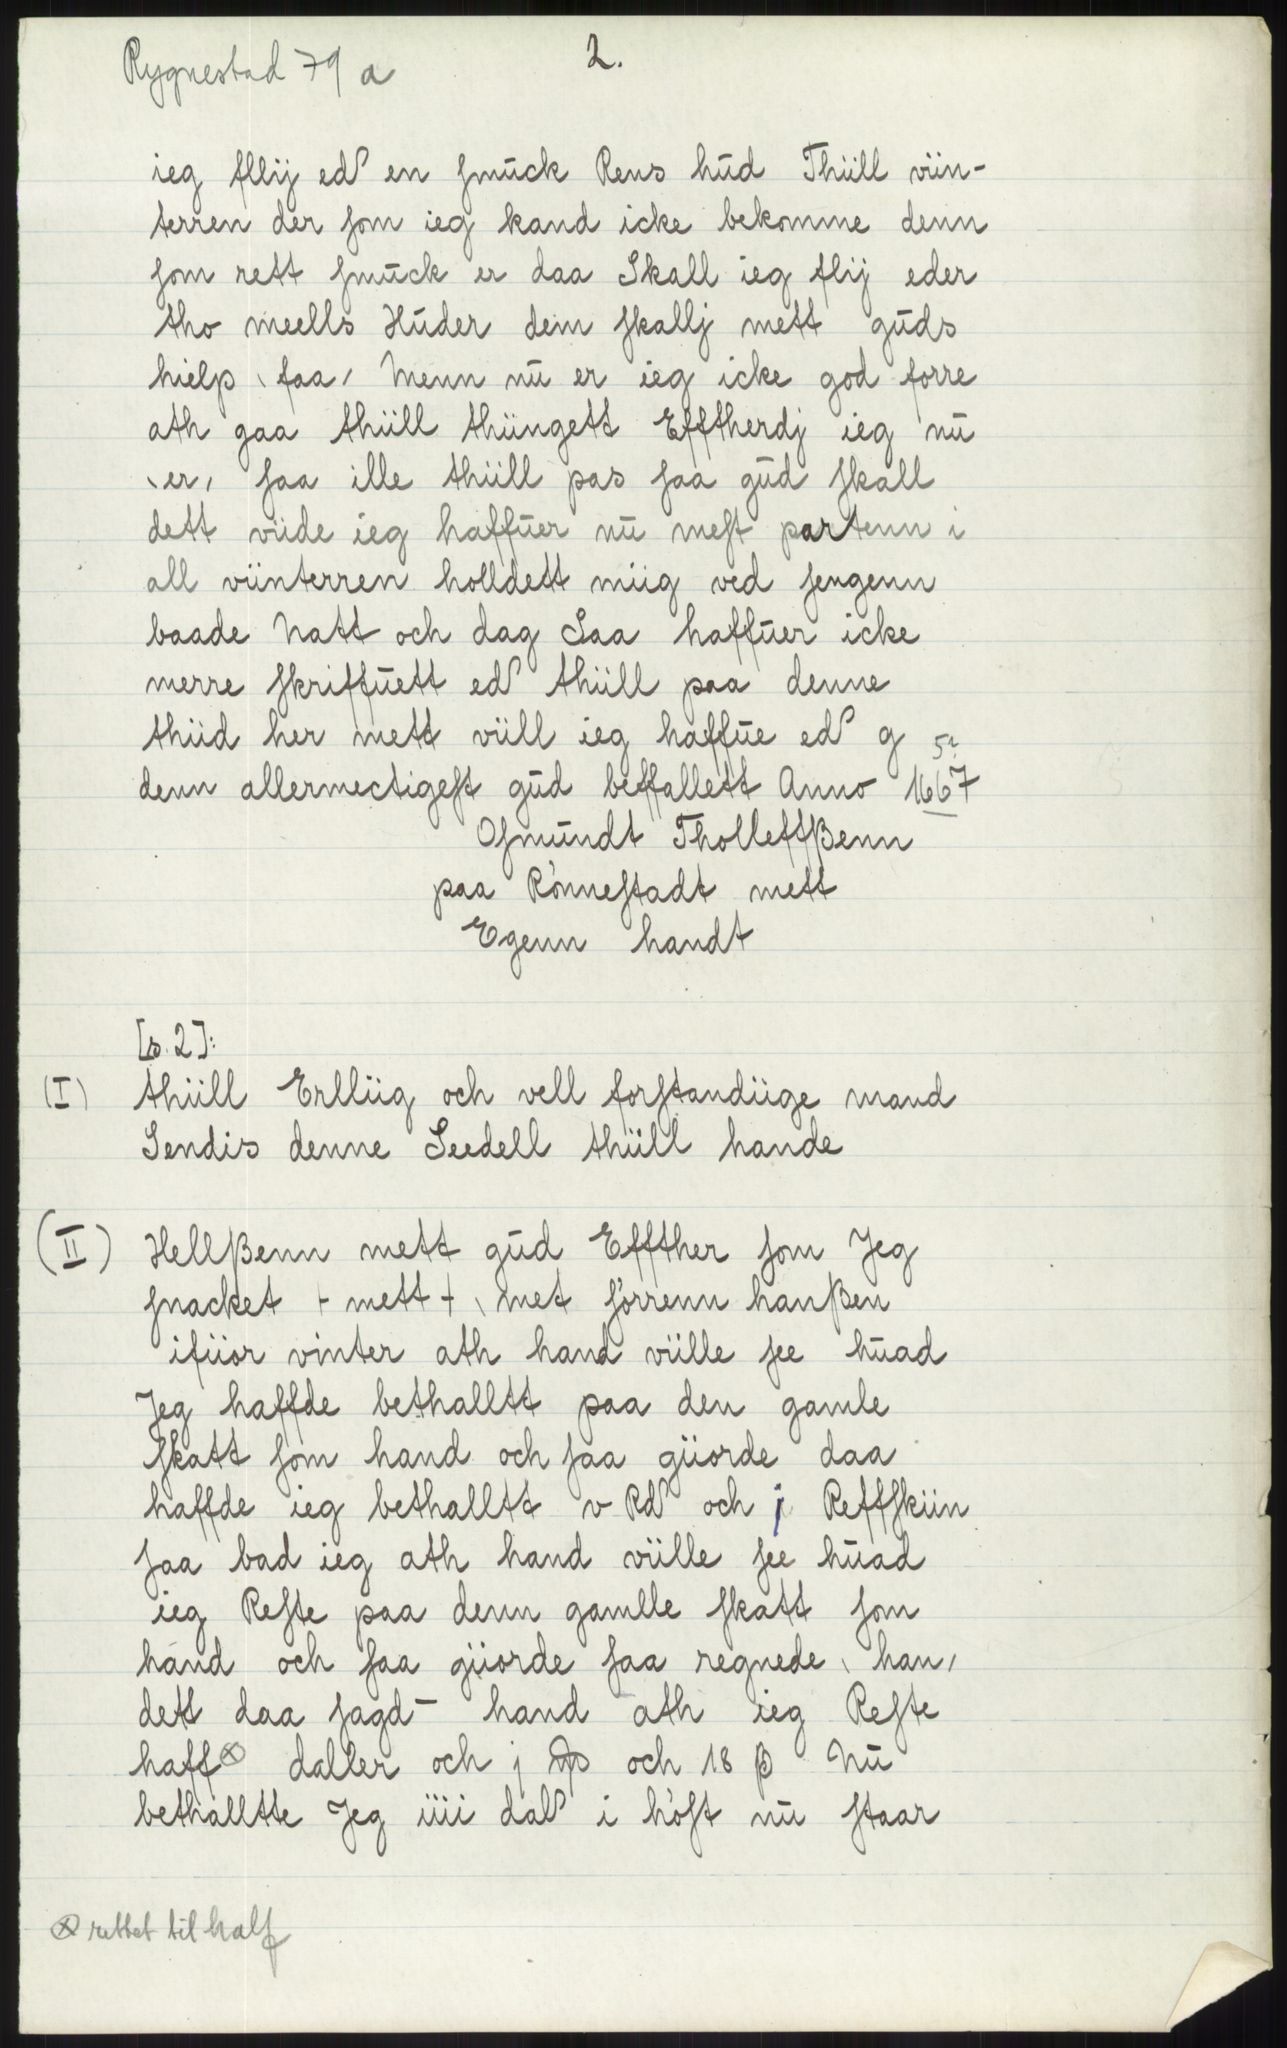 Rygnestad 79 a
2.
ieg fllij ed en smuck Rens hud Thüll vün-
terren der som ieg kand icke bekomme denn
som rett smuck er daa Skall ieg flij eder
tho meells Huder dem skallj mett guds
hielp \ faa / Menn nu er ieg icke god forre
ath gaa thüll thüngett Efftherdj ieg nu
\ er / saa ille thüll pas saa gud skall
dett vüde ieg haffuer nu mest partenn i
all vünterren holldett müg ved sengenn
baade Natt och dag Saa haffuer icke
merre skriffuett ed thüll paa denne
thüd her mett vüll ieg haffue ed g
5?
denn allermectigest gud beffallett Anno 1667
Osmundt Tholleffßenn
paa Rönnestadt mett
Egenn handt
[s. 2]:
(I) thüll Erllüg och vell forstandüge mand
Sendis denne Seedell thüll hande
(II) Hellßenn mett gud Effther som Jeg
snacket + mett + \ met sörrenn hanßen
ifüor vinter ath hand vülle see huad
Jeg haffde bethalltt paa den gamle
skatt som hand och saa güorde daa
haffde ieg bethalltt v Rd och j Reffskün
saa bad ieg ath hand vülle see huad
ieg Reste paa denn gamlle skatt som
hand och saa güorde saa regnede \ han /
dett daa sagd- hand ath ieg Reste
haff⊗ daller och j och 18 β Nu
bethalltte Jeg üii dal i höst nu staar
⊗ rettet til half